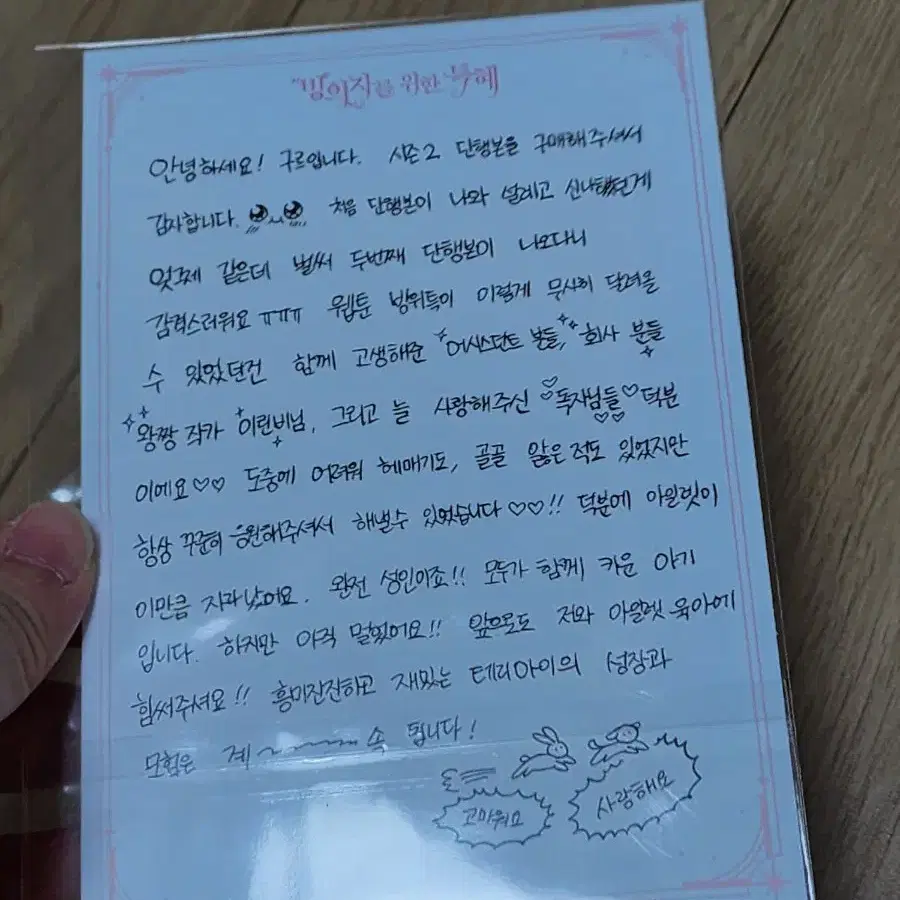 방위자를 위한 특혜
안녕하세요! 구르입니다. 시즌2 단행본을 구매해주셔서
감사합니다. 처음 단행본이 나와 설레고 신나했던게
엊그제 같은데 벌써 두번째 단행본이 나오다니
감격스러워요 ㅠㅠㅠ 웹툰 방위특이 이렇게 무사히 달려올
수 있었던건 함께 고생해준 어시스턴트 분들, 회사 분들
왕짱 작가 이린비님, 그리고 늘 사랑해주신 ♡독자님들♡ 덕분
이에요♡♡ 도중에 어려워 헤매기도, 골골 앓은적도 있었지만
항상 꾸준히 응원해주셔서 해낼수 있었습니다♡♡!! 덕분에 아윌렛이
이만큼 자라났어요. 완전 성인이죠!! 모두가 함께 키운 아기
입니다. 하지만 아직 멀었어요!! 앞으로도 저와 아윌렛 육아에
힘써주셔요!! 흥미진진하고 재밌는 테리아이의 성장과
모험은 계~~~속 됩니다!
고마워요
사랑해요